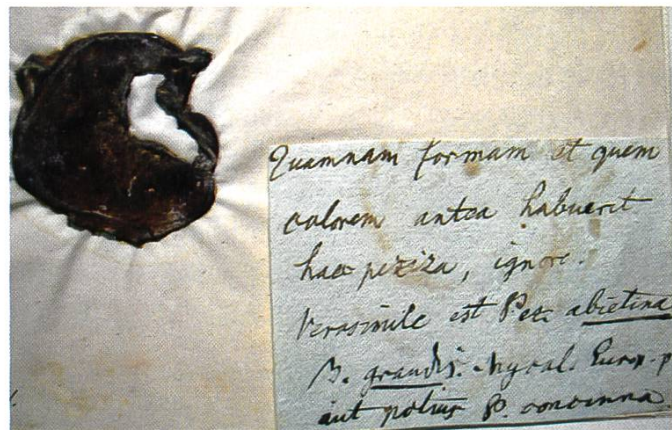 Quamnam formam et quem
colorem antea habuerit
haec peziza, ignoro.
Verosimile est Pez. abietina
B. grandis. Mycol. Europ. p
aut potius P. concinna